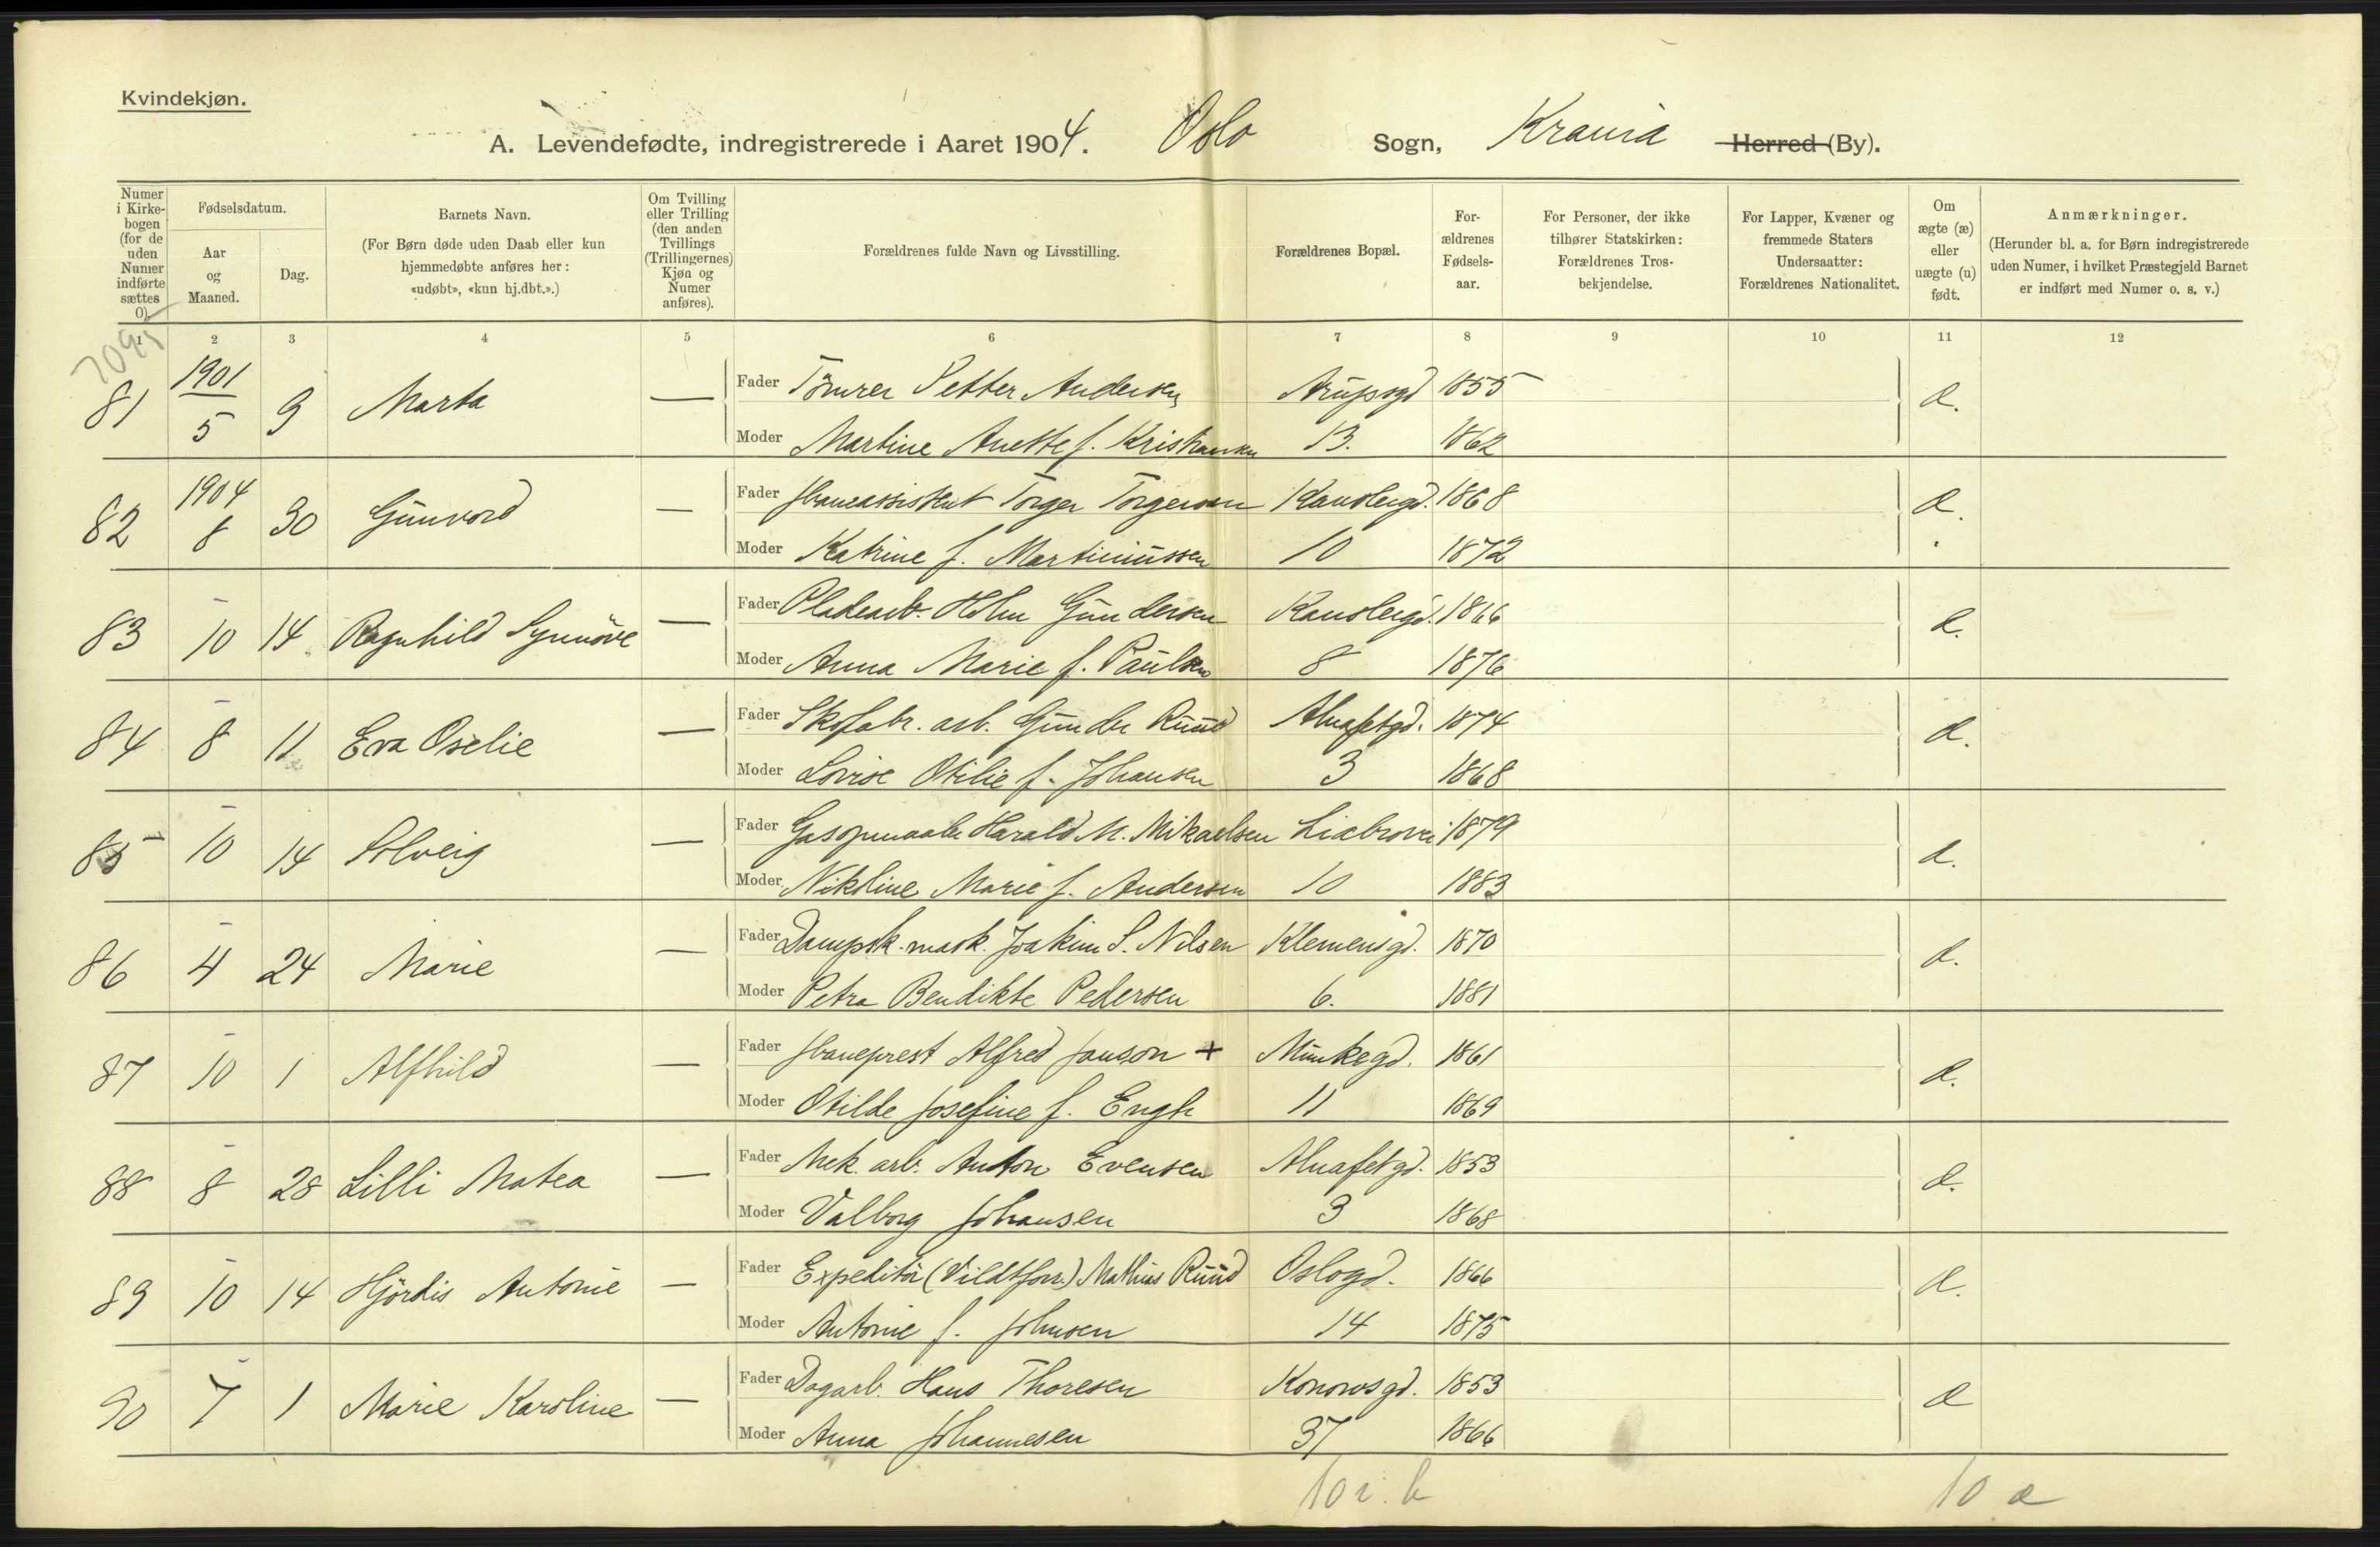 Kvindekjøn.
A. Levendefødte, indregistrerede i Aaret 1904. Oslo Sogn, Krania Herred (By).
Numer i Kirkebogen (for de uden Numer indførte sættes 0).
Fødselsdatum.
Aar og Maaned.
Dag.
Barnets Navn.
(For Børn døde uden Daab eller kun hjemmedøbte anføres her: «udøbt», «kun hj.dbt.».)
Om Tvilling eller Trilling (den anden Tvillings (Trillingernes) Kjøn og Numer anføres).
Forældrenes fulde Navn og Livsstilling.
Forældrenes Bopæl.
Forældrenes Fødselsaar.
For Personer, der ikke tilhører Statskirken: Forældrenes Trosbekjendelse.
For Lapper, Kvæner og fremmede Staters Undersaatter: Forældrenes Nationalitet.
Om ægte (æ) eller uægte (u) født.
Anmærkninger.
(Herunder bl. a. for Børn indregistrerede uden Numer, i hvilket Præstegjeld Barnet er indført med Numer o. s. v.)
1 2 3 4 5 6 7 8 9 10 11 12
81 1901 5 9 Marta — Fader Tömrer Petter Andersen Arupsgd 1855 æ.
Moder Martine Anette f. Kristiansen 13. 1862
82 1904 8 30 Gunvord — Fader Torger Torgersen Kanslergd. 1868 æ.
Moder Katrine f. Martiniussen 10 1872
83 - 10 14 Ragnhild Synnöve — Fader Pladearb. Holm Gundersen Kanslergd. 1866 æ.
Moder Anna Marie f. Paulsen 8 1876
84 - 8 11 Eva Oselie — Fader Skofabr. arb. Gunder Ruud Alnafetgd. 1874 æ.
Moder Lovise Otilie f. Johansen 3 1868
85 - 10 14 Solveig — Fader Harald M. Mikaelsen Liabrovei 1879 æ.
Moder Nikoline Marie f. Andersen 10 1883
86 - 4 24 Marie — Fader Dampsk. mask. Joakim S. Nilsen Klemensgd. 1870 æ.
Moder Petra Bendikte Pedersen 6. 1881
87 - 10 1 Alfhild — Fader Alfred Janson + Munkegd. 1861 æ.
Moder Otilde Josefine f. Engh 11 1869
88 - 8 28 Lilli Matea — Fader Mek. arb. Anton Evensen Alnafetgd. 1853 æ.
Moder Valborg Johansen 3 1868
89 - 10 14 Hjördis Antonie — Fader Expeditör (Vildtforr.) Mathias Ruud Oslogd. 1866 æ.
Moder Antonie f. Johnsen 14 1875
90 - 7 1 Marie Karoline — Fader Dagarb. Hans Thoresen Konowsgd. 1853 æ
Moder Anna Johannesen 37 1866
10 i. b 10 æ